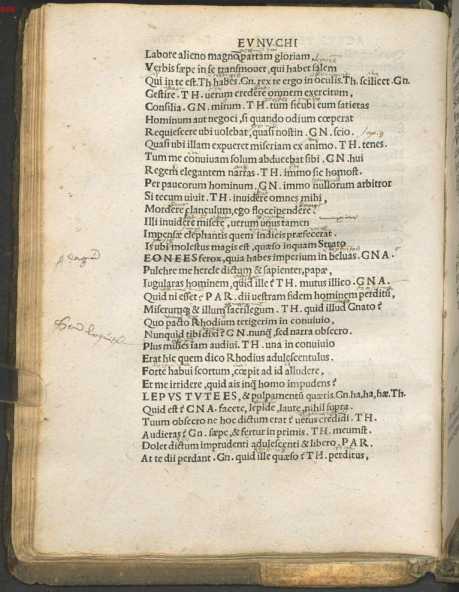 EVNVCHI
Labore alieno magno partam gloriam
Verbis sæpe in se transmouet, qui habet salem
Qui in te est. Th habes. Gn. rex te ergo in oculis. Th. scilicet. Gn.
Gestire. TH. uerum credere omnem exercitum,
Consilia. GN. mirum. TH. tum sicubi eum satietas
Hominum aut negoci, si quando odium cœperat
Requiescere ubi uolebat, quasi nostin. GN. scio.
Quasi ubi illam expueret miseriam ex animo. TH. tenes.
Tum me conuiuam solum abducebat sibi. GN. hui
Regem elegantem narras. TH. immo sic homost.
Per paucorum hominum. GN. immo nullorum arbitror
Si tecum uiuit. TH. inuidere omnes mihi,
Mordere clanculum, ego floccipendere?
Illi inuidere misere, uerum unus tamen
Impense elephantis quem indicis præfecerat.
Is ubi molestus magis est, quæso inquam Strato
EONEES ferox, quia habes imperium in beluas. GNA.
Pulchre me hercle dictum & sapienter, papæ,
Iugularas hominem, quid ille? TH. mutus illico. GNA.
Quid ni esset? PAR. dii uestram fidem hominem perditū,
Miserumq; & illum sacrilegum. TH. quid illud Gnato?
Quo pacto Rhodium tetigerim in conuiuio,
Nunquid tibi dixi? GN. nunq̃, sed narra obsecro.
Plus milies iam audiui. TH. una in conuiuio
Erat hic quem dico Rhodius adulescentulus.
Forte habui scortum, cœpit ad id alludere,
Et me irridere, quid ais inq̃ homo impudens?
LEPVS TVTEES, & pulpamentū quæris. Gn. ha, ha, hæ. Th.
Quid est? GNA. facete, lepide, laute, nihil supra.
Tuum obsecro ne hoc dictum erat? uetus credidi. TH.
Audieras? Gn. sæpe, & fertur in primis. TH. meumst.
Dolet dictum imprudenti adulescenti & libero. PAR.
At te dii perdant. Gn. quid ille quæso? TH. perditus,